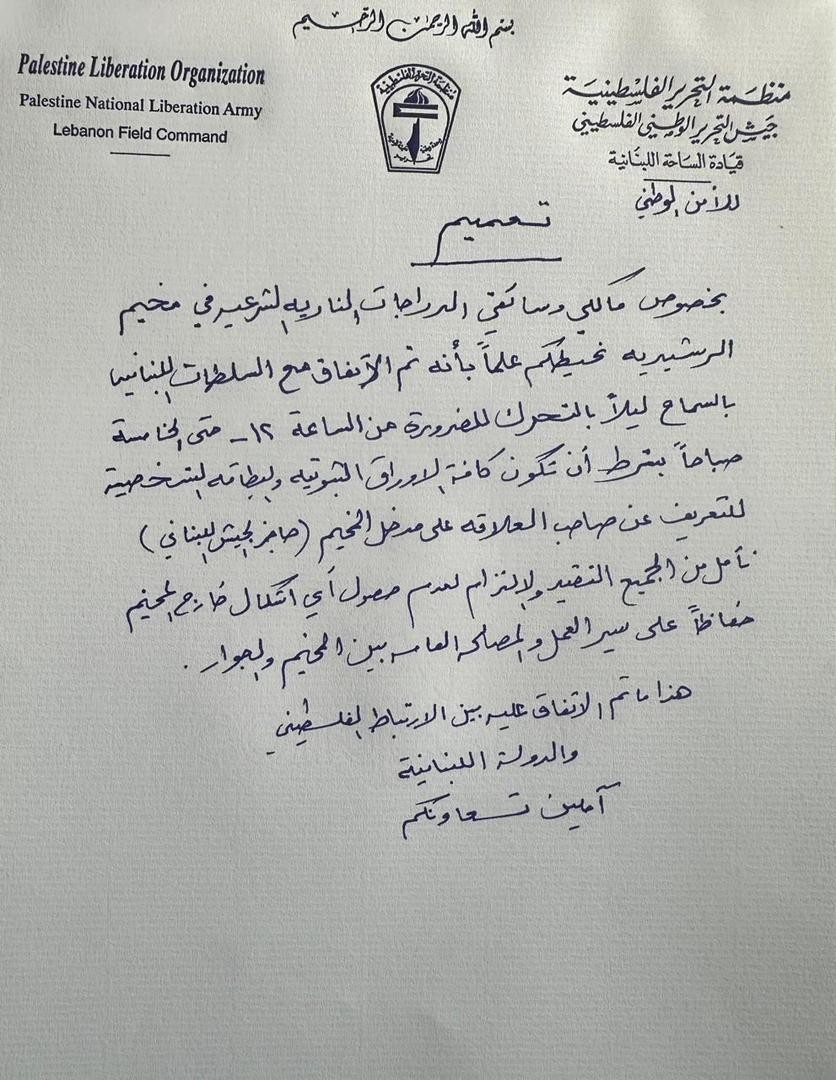 بسم الله الرحمن الرحيم
Palestine Liberation Organization
Palestine National Liberation Army
Lebanon Field Command
منظمة التحرير الفلسطينية
منظمة التحرير الفلسطينية
جيش التحرير الوطني الفلسطيني
قيادة الساحة اللبنانية
للأمن الوطني
تعميم
بخصوص مالكي وسائقي الدراجات الناريه الشرعيه في مخيم
الرشيديه نحيطكم علماً بأنه تم الاتفاق مع السلطات اللبنانيه
بالسماح ليلاً بالتحرك للضرورة من الساعة ١٢ - حتى الخامسة
صباحاً بشرط أن تكون كافة الاوراق الثبوتيه والبطاقه الشخصية
للتعريف عن صاحب العلاقه على مدخل المخيم (حاجز الجيش اللبناني)
نأمل من الجميع التقيد والالتزام لعدم حصول أي اشكال خارج المخيم
حفاظاً على سير العمل والمصلحه العامه بين المخيم والجوار .
هذا ما تم الاتفاق عليه بين الارتباط الفلسطيني
والدولة اللبنانية
آملين تعاونكم